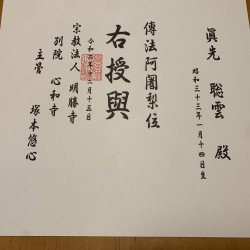 眞先 聡雲 殿
昭和三十三年一月十四日生
傳法阿闍梨位
右授與
令和 年十二月十五日
宗教法人 明勝寺
別院 心和寺
主管 塚本悠心